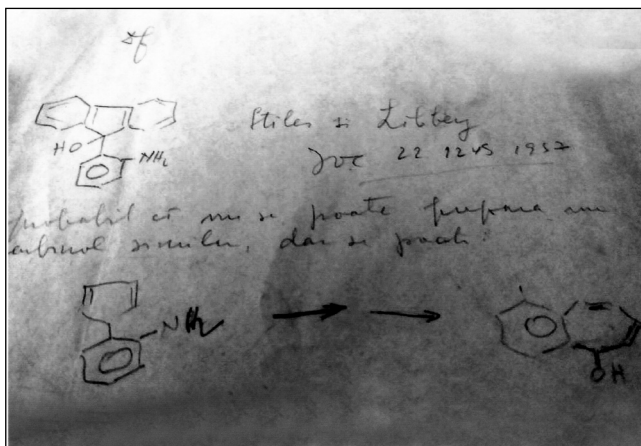 HO
NH₂
Stiles si Libbey
JOC 22 1243 1957
probabil că nu se poate prepara un
carbinol similar, dar se poate:
NH₂
OH